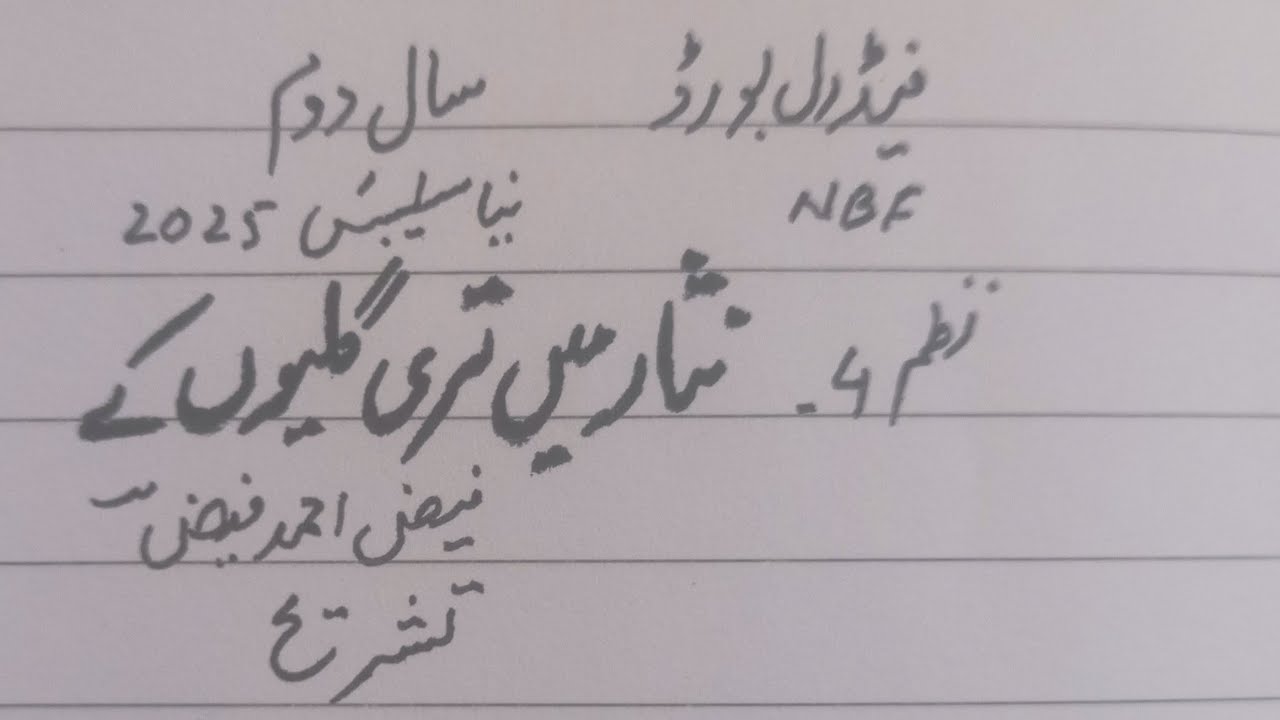 فیڈرل بورڈ سال دوم
NBF نیا سلیبس 2025
نظم 4۔ نثار میں تری گلیوں کے
فیض احمد فیض
تشریح